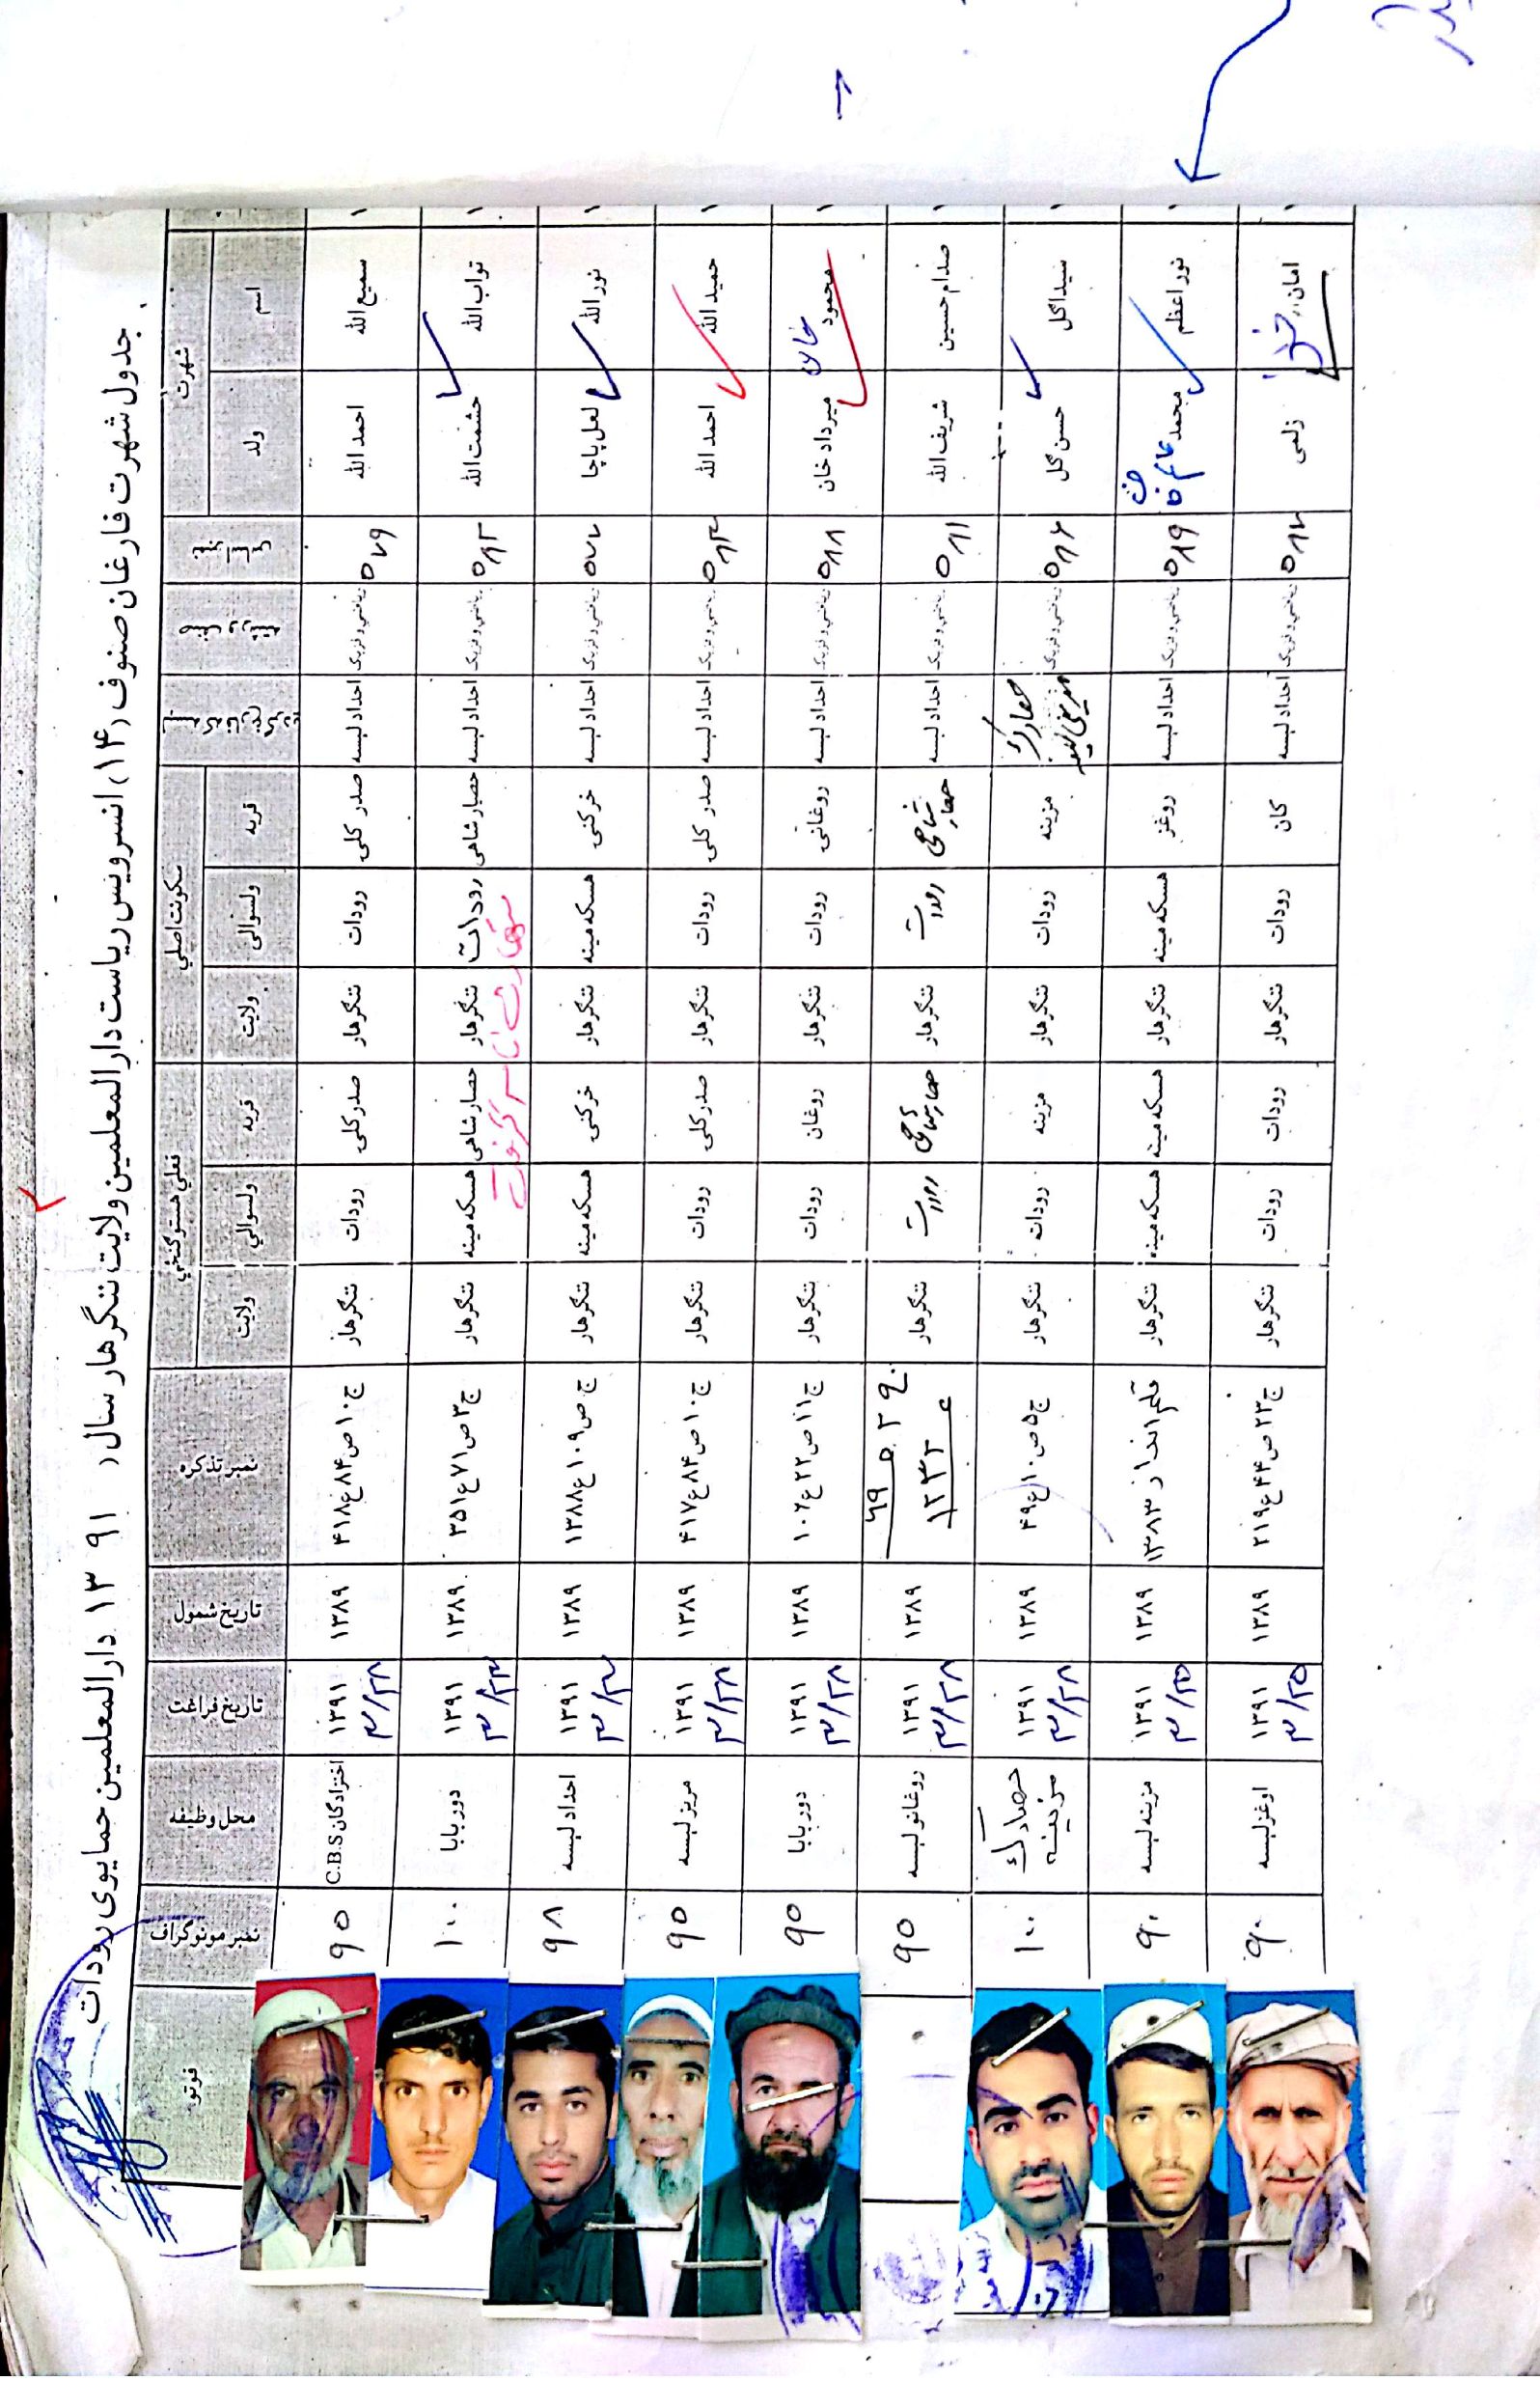 جدول شهرت فارغان صنوف (۱۴) انسرویس ریاست دارالمعلمین ولایت ننگرهار سال ( ۹۱ ۱۳ دارالمعلمین حمایوی رودات
شهرت سکونت اصلي فعلي هستوګنځي نمبر تذکره تاریخ شمول تاریخ فراغت محل وظیفه نمبر مونوګراف فوتو
اسم ولد قریه ولسوالی ولایت قریه ولسوالي ولایت
سمیع الله احمد الله ۵۷۹ ریاضي و فزیک احداد لیسه صدر کلی رودات ننگرهار صدرکلی رودات ننگرهار ج۱۰ص۸۴ع۴۱۸ ۱۳۸۹ ۱۳۹۱ ۳/۲۸ اختزادګان C.B.S ۹۵
تواب الله حشمت الله ۵۸۲ ریاضي و فزیک احداد لیسه حصارشاهی رودات ننگرهار حصارشاهی هسکه مینه ننگرهار ج۳ص۷۱ع۳۵۱ ۱۳۸۹ ۱۳۹۱ ۳/۲۳ دوربابا ۱۰۰
نور الله لعل پاچا ۵۷۷ ریاضي و فزیک احداد لیسه خرکنی هسکه مینه ننگرهار خرکنی هسکه مینه ننگرهار ج ص۱۰۹ع۱۳۸۸ ۱۳۸۹ ۱۳۹۱ ۳/۲۷ احداد لیسه ۹۸
حمید الله احمد الله ۵۸۳ ریاضي و فزیک احداد لیسه صدر کلی رودات ننگرهار صدرکلی رودات ننگرهار ج۱۰ص۸۴ع۴۱۷ ۱۳۸۹ ۱۳۹۱ ۳/۲۸ مریز لیسه ۹۵
محمود خان میرداد خان ۵۸۸ ریاضي و فزیک احداد لیسه روغانی رودات ننگرهار روغان رودات ننگرهار ج۱۱ص۲۲ع۱۰۶ ۱۳۸۹ ۱۳۹۱ ۳/۲۸ دوربابا ۹۵
صدام حسین شریف الله ۵۸۱ ریاضي و فزیک احداد لیسه حصارشاهی رودات ننگرهار حصارشاهی رودات ننگرهار ج ۲۹ ص ۶۹ ع ۱۲۳۲ ۱۳۸۹ ۱۳۹۱ ۳/۲۸ روغانو لیسه ۹۵
سیداګل حسن گل ۵۸۶ ریاضي و فزیک حصارک مزینه رودات ننگرهار مزینه رودات ننگرهار ج۵ص۱۰ع۴۹ ۱۳۸۹ ۱۳۹۱ ۳/۲۸ حصارک مزینه ۱۰۰
نور اعظم محمد عالم خان ۵۸۹ ریاضي و فزیک احداد لیسه روغز هسکه مینه ننگرهار هسکه مینه هسکه مینه ننگرهار قلم انداز ۱۳۸۳ ۱۳۸۹ ۱۳۹۱ ۳/۲۵ مزینه لیسه ۹۰
امان زلمی ۵۸۷ ریاضي و فزیک احداد لیسه کان رودات ننگرهار رودات رودات ننگرهار ج۲۳ص۴۴ع۲۱۹ ۱۳۸۹ ۱۳۹۱ ۳/۲۵ اوغز لیسه ۹۰